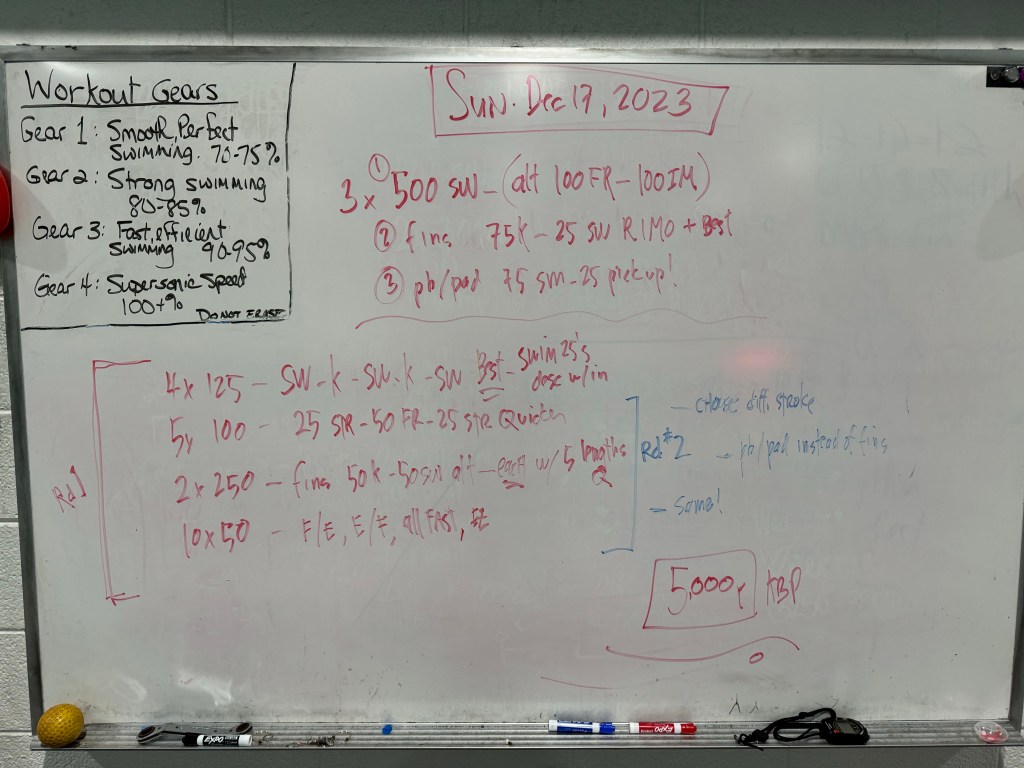 Workout Gears
Gear 1: Smooth, Perfect
Swimming. 70-75%
Gear 2: Strong swimming
80-85%
Gear 3: Fast, efficient
Swimming 90-95%
Gear 4: Supersonic Speed
100+%
DO NOT ERASE
Sun. Dec 17, 2023
3 x ① 500 SW - (alt 100 FR - 100 IM)
② fins 75K - 25 SW RIMO + Best
③ pb/pad 75 sm - 25 pickup!
Rd 1
4 x 125 - SW - K - SW - K - SW Best - swim 25's
desc w/in
5x 100 - 25 STR - 50 FR - 25 STR Quicker
2 x 250 - fins 50K - 50sm alt - each w/ 5 lengths
Q
10 x 50 - F/E, E/F, all FAST, EZ
Rd #2
- choose diff. stroke
- pb/pad instead of fins
- Same!
5,000 KBP
EXPO